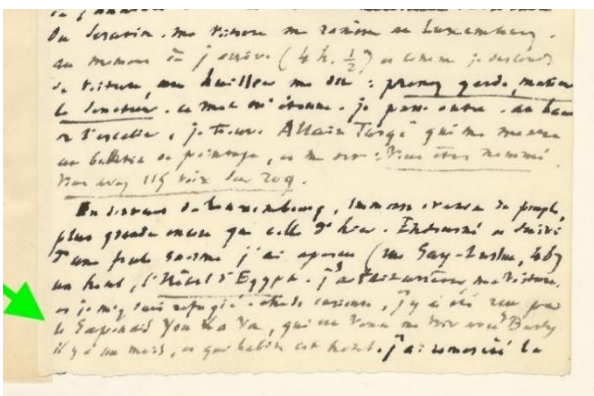 Du scrutin. ma voiture me ramène au Luxembourg.
au moment où j'arrive (4 h. ½) et comme je descends
de voiture, un huissier me dit : prenez garde, monsieur
le Sénateur. ce mot m'étonne. je passe outre. au haut
de l'escalier, je trouve Allain Targé qui me montre
un bulletin de pointage, et me dit : Vous êtes nommé.
Vous avez 115 voix sur 209.
En sortant du Luxembourg, immense ovation du peuple,
plus grande encore que celle d'hier. Entouré et suivi
d'une foule énorme j'ai aperçu (rue Gay-Lussac, 46)
un hôtel, l'Hôtel d'Egypte. j'ai fait arrêter ma voiture,
et je m'y suis réfugié. j'y ai été reçu par
le Japonais You Ka Va, qui est venu me voir avec Burty
il y a un mois, et qui habite cet hôtel. j'ai remercié la